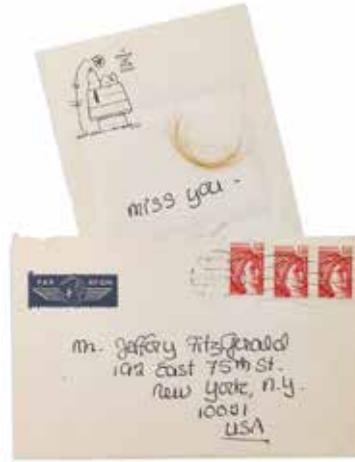 miss you -
PAR AVION
Mr. Jeffory FitzGerald
192 East 75th St.
New York, N.Y.
10021
USA